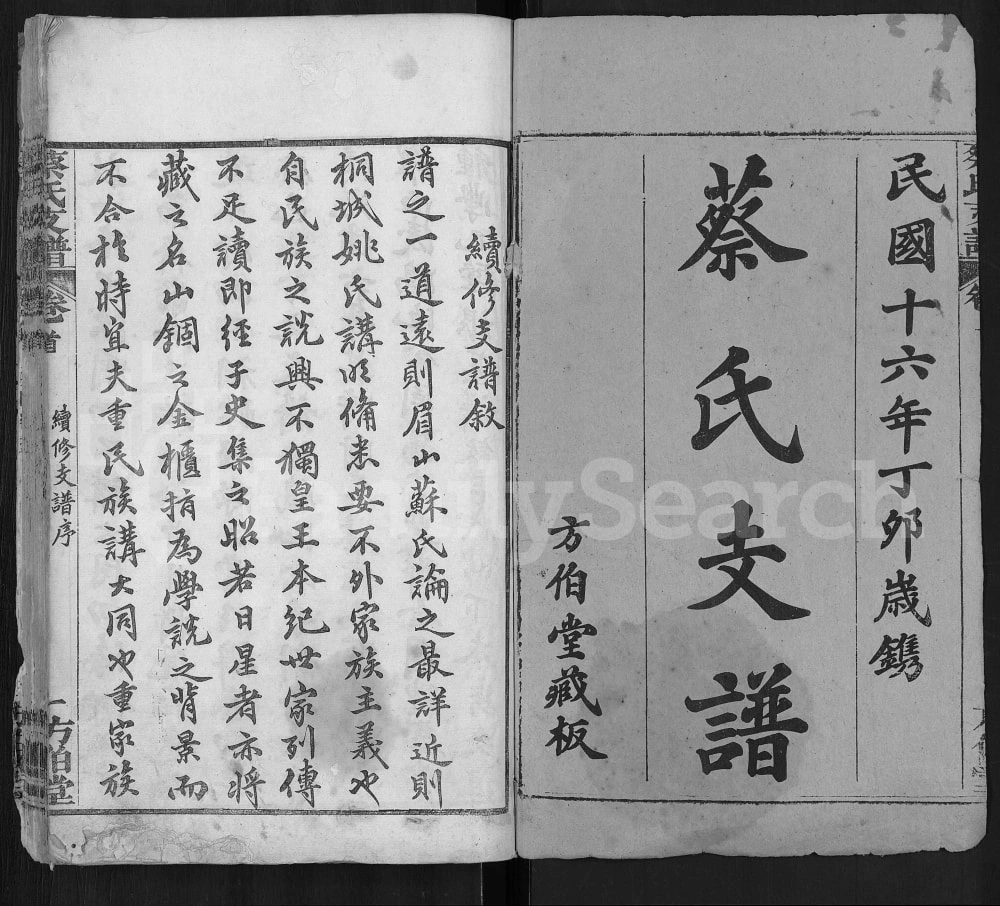 民國十六年丁卯歲鐫
蔡氏支譜
方伯堂藏板
續修支譜敘
譜之一道遠則眉山蘇氏論之最詳近則
桐城姚氏講明備悉要不外家族主義也
自民族之說興不獨皇王本紀世家列傳
不足讀即經子史集之昭若日星者亦將
藏之名山錮之金櫃指為學說之背景而
不合於時宜夫重民族講大同也重家族
蔡氏支譜 卷首 續修支譜序 一 方伯堂
FamilySearch